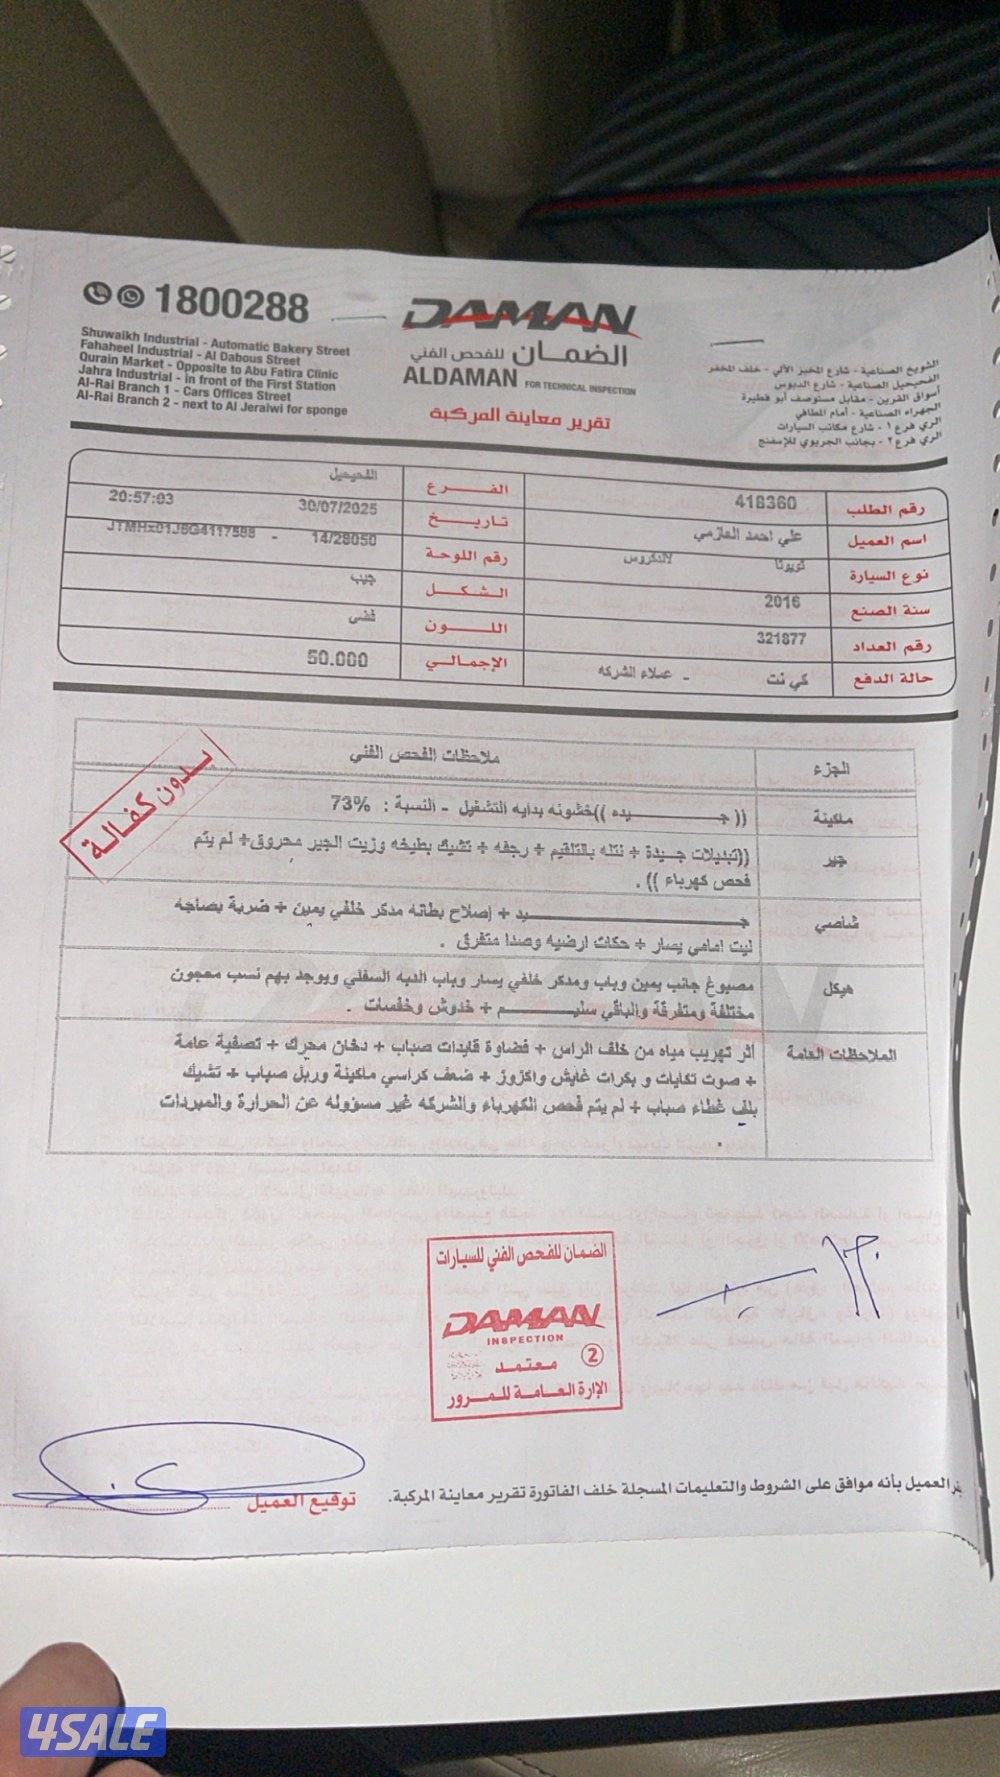 1800288
Shuwaikh Industrial - Automatic Bakery Street
Fahaheel Industrial - Al Dabous Street
Qurain Market - Opposite to Abu Fatira Clinic
Jahra Industrial - in front of the First Station
Al-Rai Branch 1 - Cars Offices Street
Al-Rai Branch 2 - next to Al Jeraiwi for sponge
DAMAN
الضمـان للفحص الفني
ALDAMAN FOR TECHNICAL INSPECTION
تقرير معاينة المركبة
الشويخ الصناعية - شارع المخبز الآلي - خلف المخفر
الفحيحيل الصناعية - شارع الدبوس
أسواق القرين - مقابل مستوصف أبو فطيرة
الجهراء الصناعية - أمام المطافي
الري فرع ١ - شارع مكاتب السيارات
الري فرع ٢ - بجانب الجريوي للإسفنج
رقم الطلب 418360 الفــرع الفحيحيل
اسم العميل علي احمد العازمي تاريـخ 30/07/2025 20:57:03
نوع السيارة تويوتا لاندكروس رقم اللوحة 14/28050 - JTMHx01J6G4117588
سنة الصنع 2016 الشـكـل جيب
رقم العداد 321877 اللـــون فضي
حالة الدفع كي نت - عملاء الشركه الإجمـالـي 50.000
الجزء ملاحظات الفحص الفني
بــدون كفــالــة
ماكينة (( جـــــــيده ))خشونه بدايه التشغيل - النسبة : 73%
جير ((تبديلات جــيدة + نتله بالتلقيم + رجفه + تشيك بطيخه وزيت الجير محروق+ لم يتم
فحص كهرباء )) .
شاصي جـــــــيد + إصلاح بطانه مدكر خلفي يمين + ضربة بصاجه
ليت امامي يسار + حكات ارضيه وصدا متفرق .
هيكل مصبوغ جانب يمين وباب ومدكر خلفي يسار وباب الدبه السفلي ويوجد بهم نسب معجون
مختلفة ومتفرقة والباقي سليـــــــم + خدوش وخفسات .
الملاحظات العامة أثر تهريب مياه من خلف الراس + فضاوة قايدات صباب + دخان محرك + تصفية عامة
+ صوت تكايات و بكرات غايش واكزوز + ضعف كراسي ماكينة وربل صباب + تشيك
بلف غطاء صباب + لم يتم فحص الكهرباء والشركه غير مسؤوله عن الحرارة والمبردات
.
الضمان للفحص الفني للسيارات
DAMAN
INSPECTION
معتمد 2
الإرة العـامـة للمرور
العميل بأنه موافق على الشروط والتعليمات المسجلة خلف الفاتورة تقرير معاينة المركبة.
توقيع العميل
4SALE